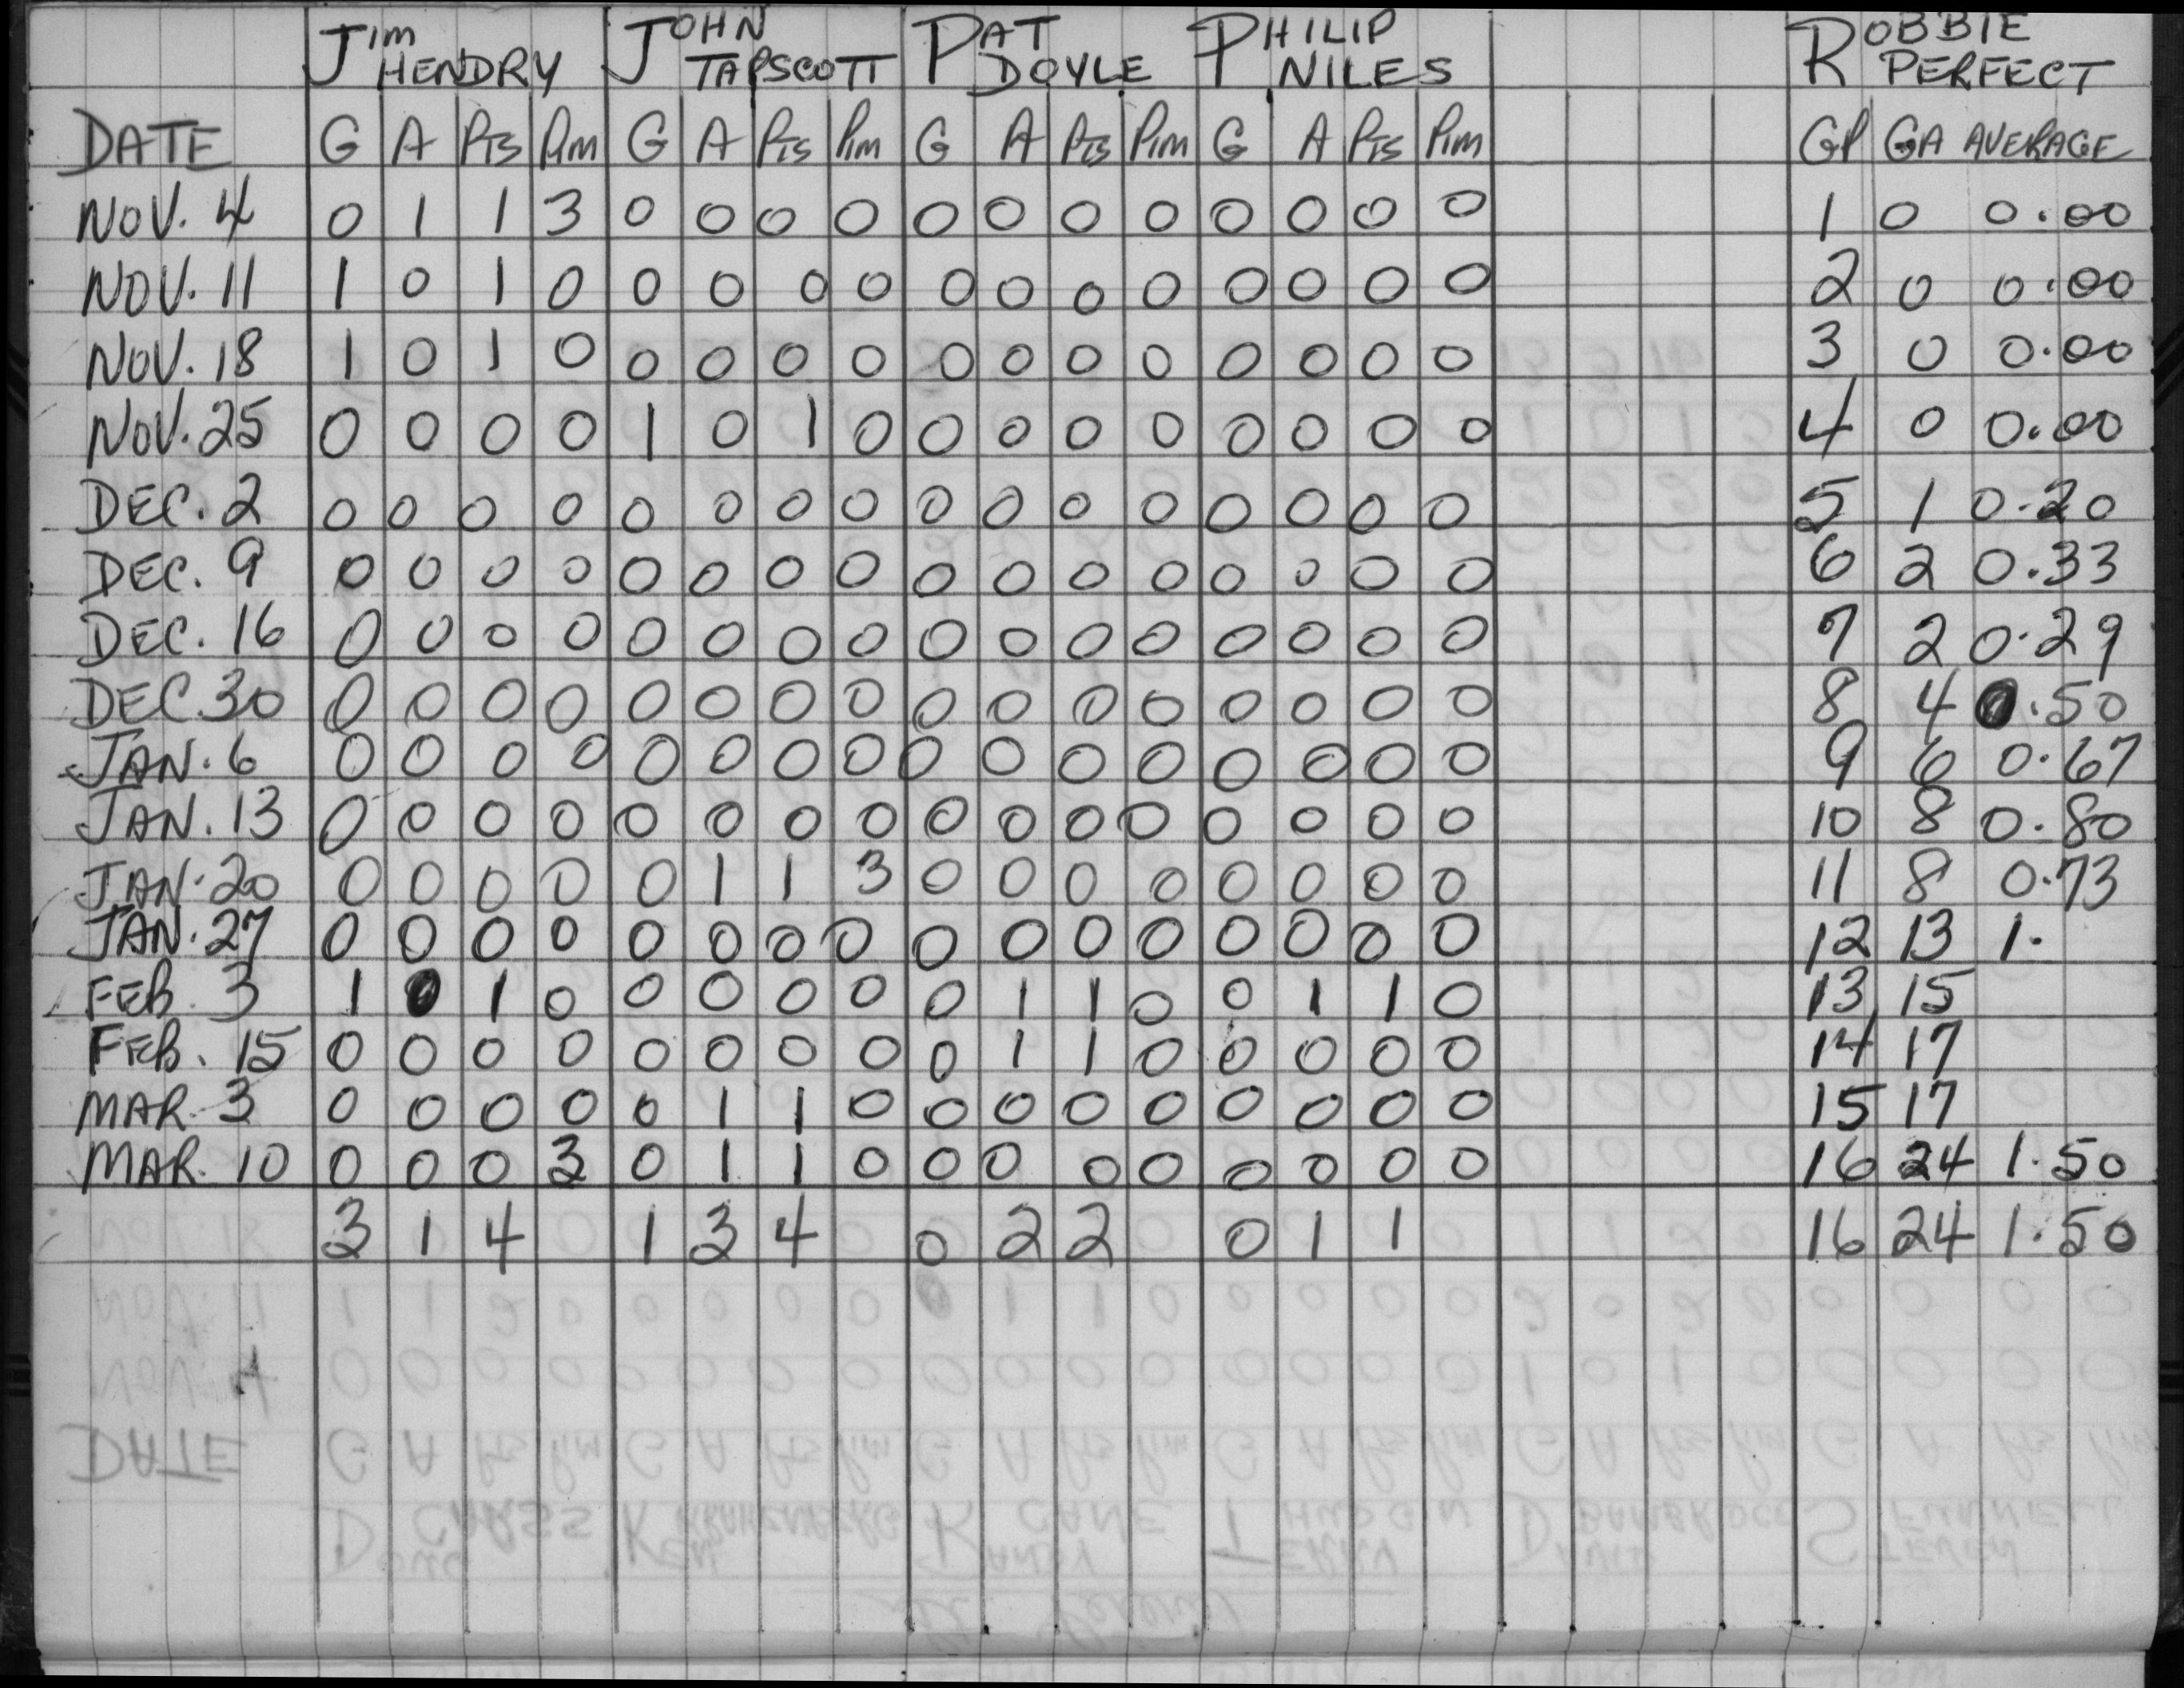 JIM HENDRY JOHN TAPSCOTT PAT DOYLE PHILIP NILES ROBBIE PERFECT
DATE G A PTS PIM G A PTS PIM G A PTS PIM G A PTS PIM GP GA AVERAGE
NOV. 4 0 1 1 3 0 0 0 0 0 0 0 0 0 0 0 0 1 0 0.00
NOV. 11 1 0 1 0 0 0 0 0 0 0 0 0 0 0 0 0 2 0 0.00
NOV. 18 1 0 1 0 0 0 0 0 0 0 0 0 0 0 0 0 3 0 0.00
NOV. 25 0 0 0 0 1 0 1 0 0 0 0 0 0 0 0 0 4 0 0.00
DEC. 2 0 0 0 0 0 0 0 0 0 0 0 0 0 0 0 0 5 1 0.20
DEC. 9 0 0 0 0 0 0 0 0 0 0 0 0 0 0 0 0 6 2 0.33
DEC. 16 0 0 0 0 0 0 0 0 0 0 0 0 0 0 0 0 7 2 0.29
DEC. 30 0 0 0 0 0 0 0 0 0 0 0 0 0 0 0 0 8 4 0.50
JAN. 6 0 0 0 0 0 0 0 0 0 0 0 0 0 0 0 0 9 6 0.67
JAN. 13 0 0 0 0 0 0 0 0 0 0 0 0 0 0 0 0 10 8 0.80
JAN. 20 0 0 0 0 0 1 1 3 0 0 0 0 0 0 0 0 11 8 0.73
JAN. 27 0 0 0 0 0 0 0 0 0 0 0 0 0 0 0 0 12 13 1.
FEB. 3 1 0 1 0 0 0 0 0 0 1 1 0 0 1 1 0 13 15
FEB. 15 0 0 0 0 0 0 0 0 0 1 1 0 0 0 0 0 14 17
MAR. 3 0 0 0 0 0 1 1 0 0 0 0 0 0 0 0 0 15 17
MAR. 10 0 0 0 3 0 1 1 0 0 0 0 0 0 0 0 0 16 24 1.50
3 1 4 1 3 4 0 2 2 0 1 1 16 24 1.50